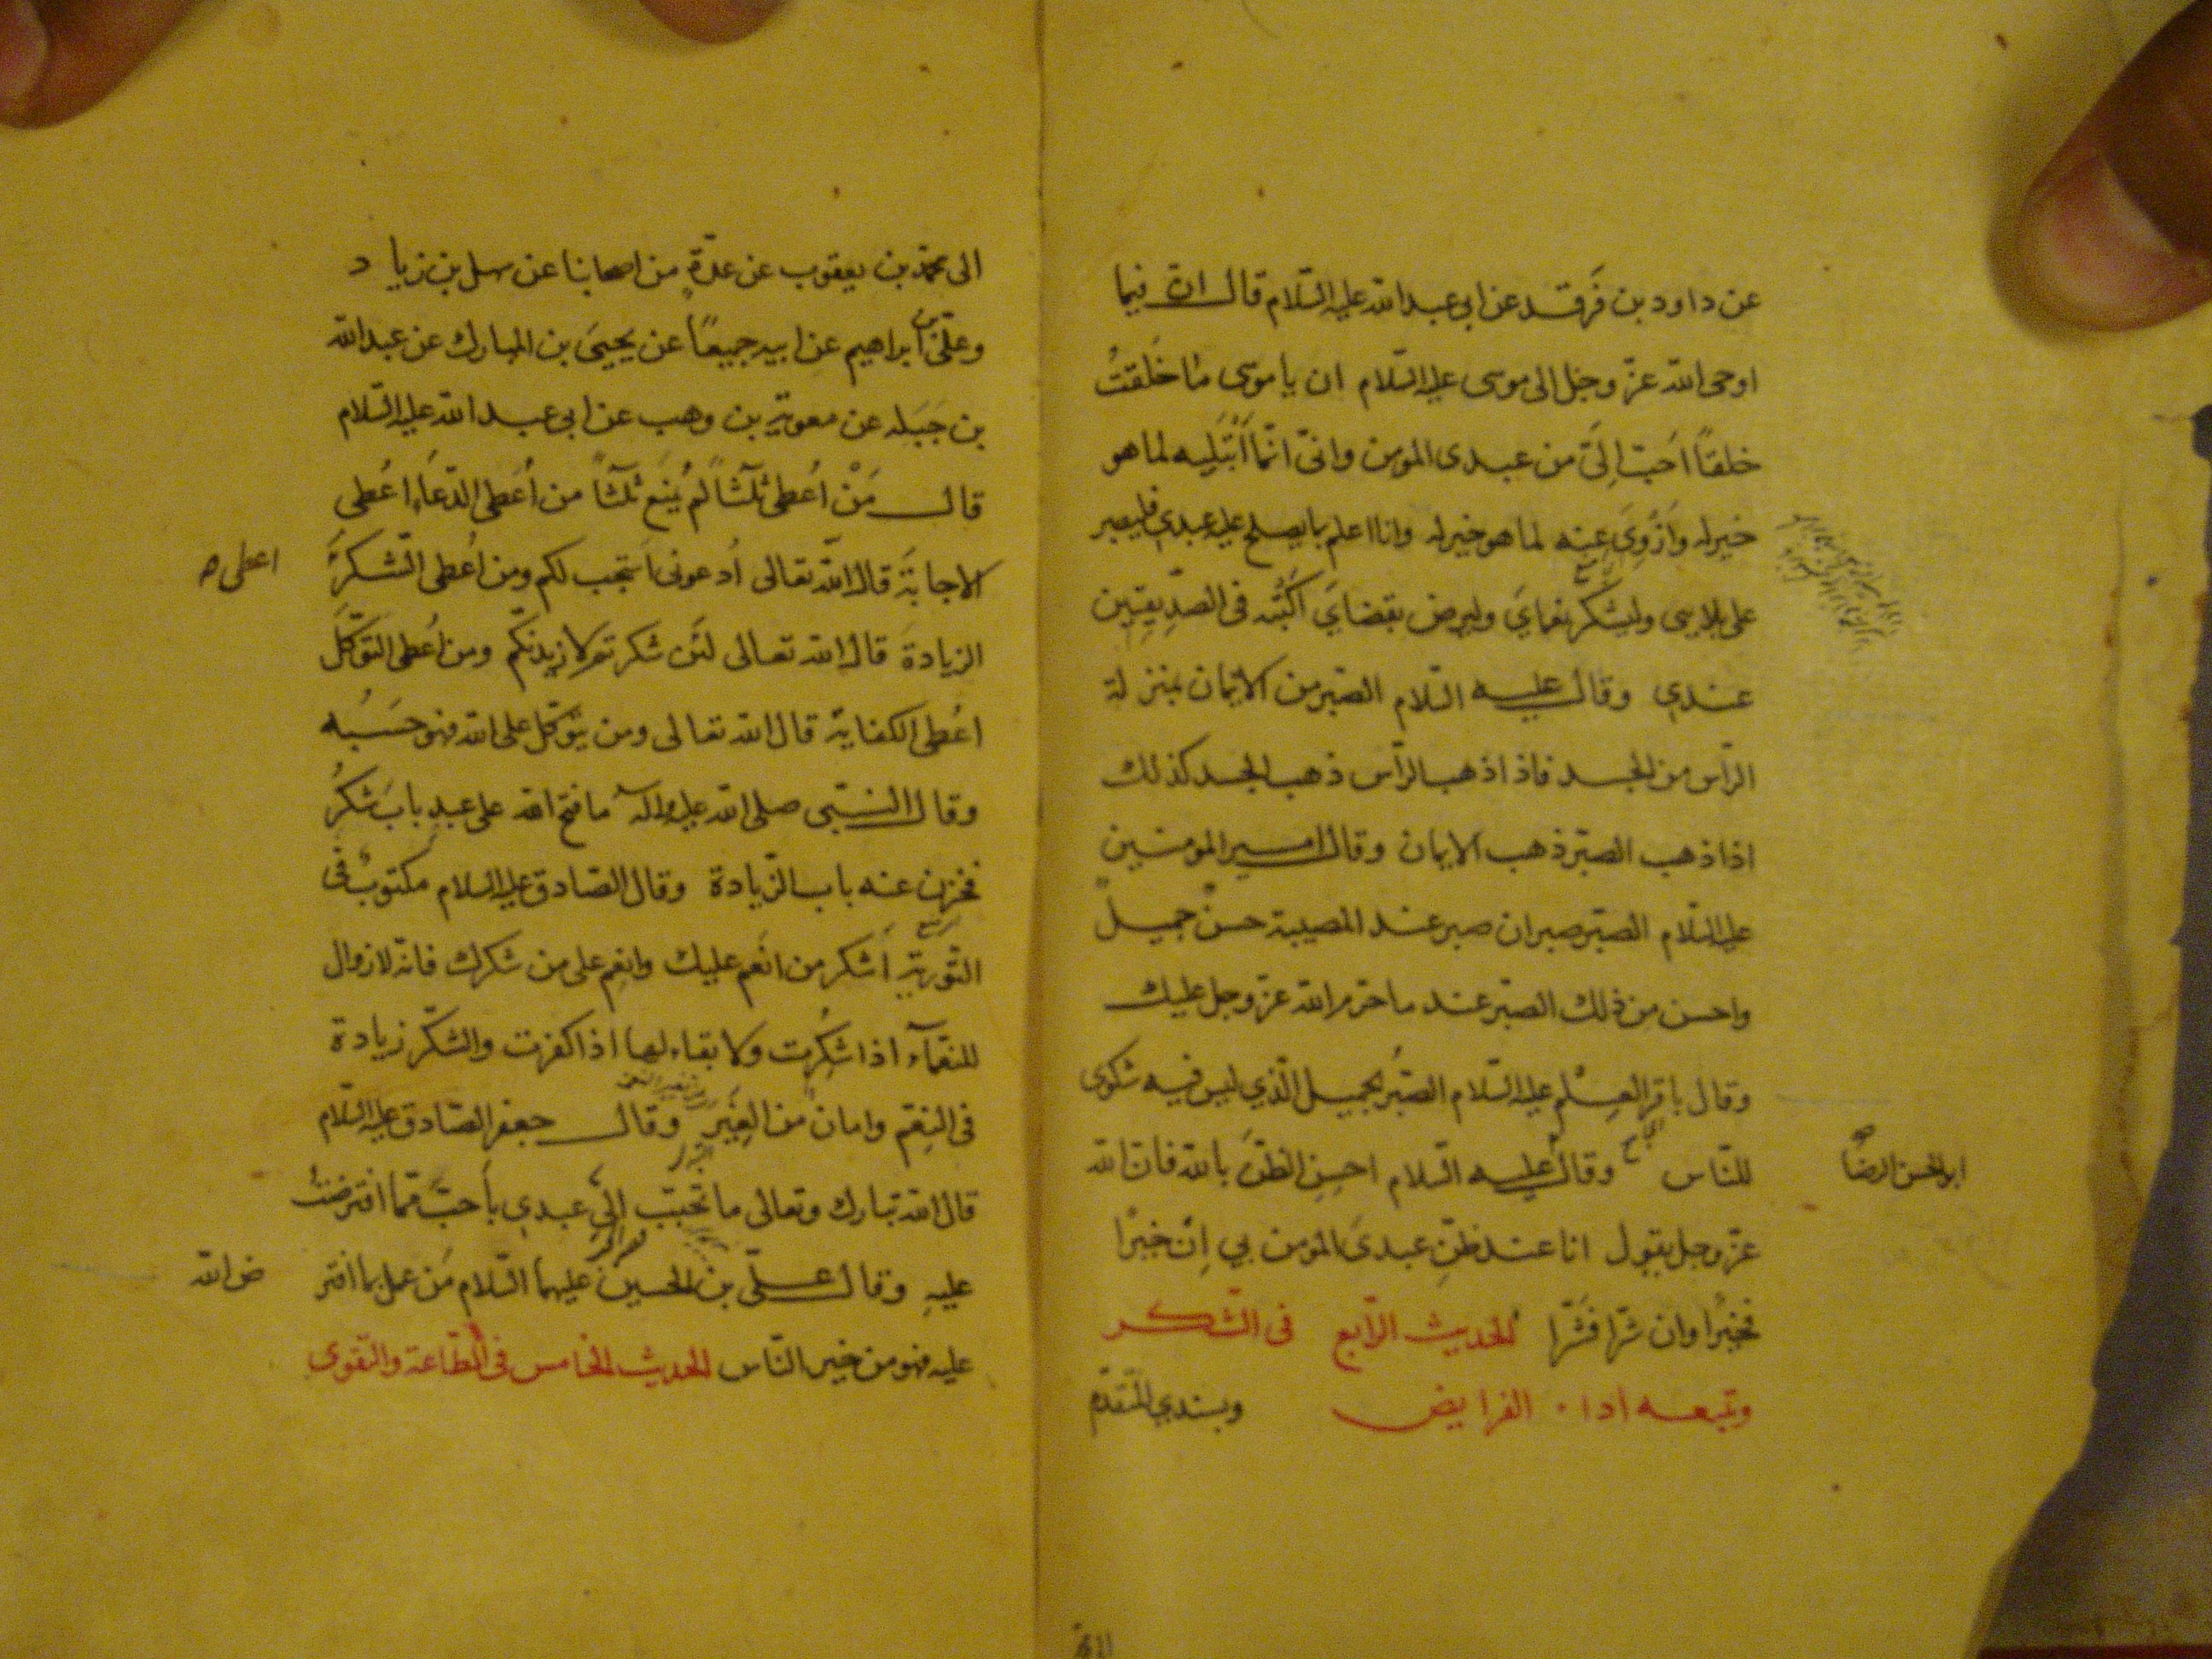 عن داود بن فَرقد عن ابى عبد الله عليه السّلام قال ان فيما
اوحى الله عزّ وجلّ الى موسى عليه السّلام ان يا موسى ما خَلَقتُ
خلقاً احَبّ اِلَىَّ من عبدى المؤمن وانّى انّما اَبْتَلِيه لما هو
خير له وَاَزْوِىَ عنه لما هو خير له وانا اعلم بما يصلح عليه عبدي فليصبر
على بلايى وليشكر نعمايَ وليرض بقضايَ اَكْتُبْه فى الصدِّيقِين
عندي وقال عليه السّلام الصّبر من الايمان بمنزلة
الرّأس من الجسد فاذا ذهب الرّأس ذهب الجسد كذلك
اذا ذهب الصّبر ذهب الايمان وقال امير المومنين
عليه السّلام الصّبر صبران صبر عند المصيبة حسنٌ جميلٌ
واحسن من ذلك الصّبر عند ما حرّم الله عزّ وجل عليك
وقال باقر العِلْم عليه السّلام الصّبرُ الجميل الّذي ليس فيه شكوى
للنّاس وقال عليه السّلام احسِنِ الظنَّ بالله فانّ الله
ابو الحسن الرضا
عزّ وجل يقول انا عند ظنِّ عبدىَ المؤمن بي اِنْ خيرًا
فخيرًا وان شرّا فشرّا الحديث الرّابع فى الشّكر
وتبعه اداء الفرايض وبسندي المتقدّم
الى محمّد بن يعقوب عن عدّةٍ من اصحابنا عن سهل بن زياد
وعلىّ بن ابراهيم عن ابيه جميعًا عن يحيىَ بن المبارك عن عبد الله
بن جَبَله عن معوية بن وهب عن ابى عبد الله عليه السّلام
قال مَنْ اُعطى ثلٰثاً لم يُمنَع ثلٰثاً من اُعطى الدّعاءَ اُعطى
الاجابَةَ قال الله تعالى اُدعونى استجب لكم ومن اُعطى الشّكرَ
اعطى صح
الزيادةَ قال الله تعالى لئن شكرتم لازيدنّكم ومن اُعطى التّوكّلَ
اعُطى الكفاية قال الله تعالى ومن يتوكّل على الله فهو حسَبُه
وقال النبّى صلى الله عليه وآله ما فتح الله على عبدٍ بابَ شكرٍ
فخزن عنه باب الزّيادة وقال الصّادق عليه السلام مكتوبٌ فى
التّورية اَشكر من انعَم عليك وانعِم على من شكرك فانّه لا زوال
للنعّمآء اذا شكِرُت ولا بقاء لها اذا كفرت والشّكر زيادة
فى النِعَم وامان من الغِيَر وقال جعفر الصّادق عليه السّلام
قال الله تبارك وتعالى ما تحبّب الىّ عبدي بأحبّ ممّا افترضتُ
عليهِ وقال علىّ بن الحسين عليهما السّلام مَن عمل بما افتر
ض الله
عليه فهو من خير النّاس الحديث الخامس فى الطّاعة والتقوى